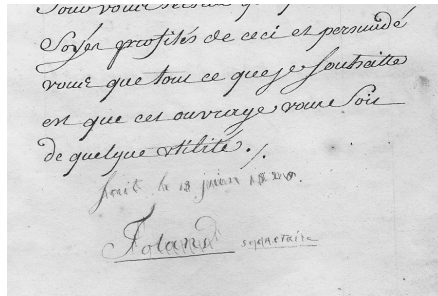 Soyez profités de ceci et persuadé
vous que tout ce que je souhaitte
est que cet ouvrage vous soit
de quelque utilité ./.
fait le 18 juin
Foland secretaire